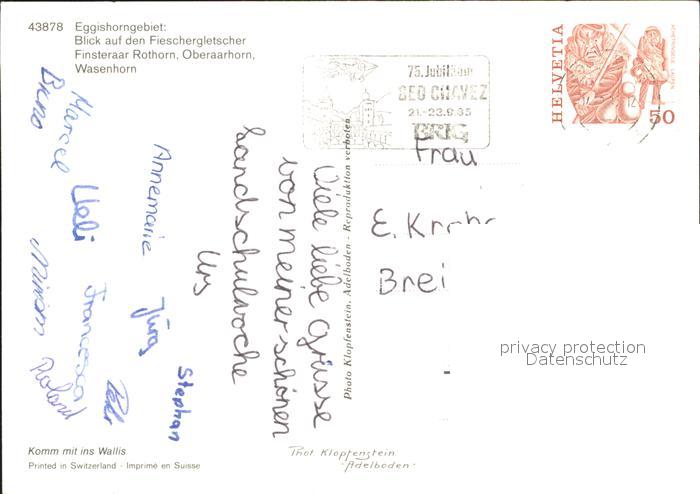 43878 Eggishorngebiet:
Blick auf den Fieschergletscher
Finsteraar Rothorn, Oberaarhorn,
Wasenhorn
75. Jubiläum
GEO CHAVEZ
21.-23.9.85
BRIG
HELVETIA
50
Viele liebe Grüsse
von meiner schönen
Landschulwoche
Urs
Annemarie
Jürg
Stephan
Marcel
Ueli
Francesca
Peter
Beno
Miriam
Roland
Frau
E.
Photo Klopfenstein, Adelboden - Reproduktion verboten
privacy protection
Datenschutz
Komm mit ins Wallis
Printed in Switzerland - Imprimé en Suisse
Phot. Klopfenstein
-Adelboden-